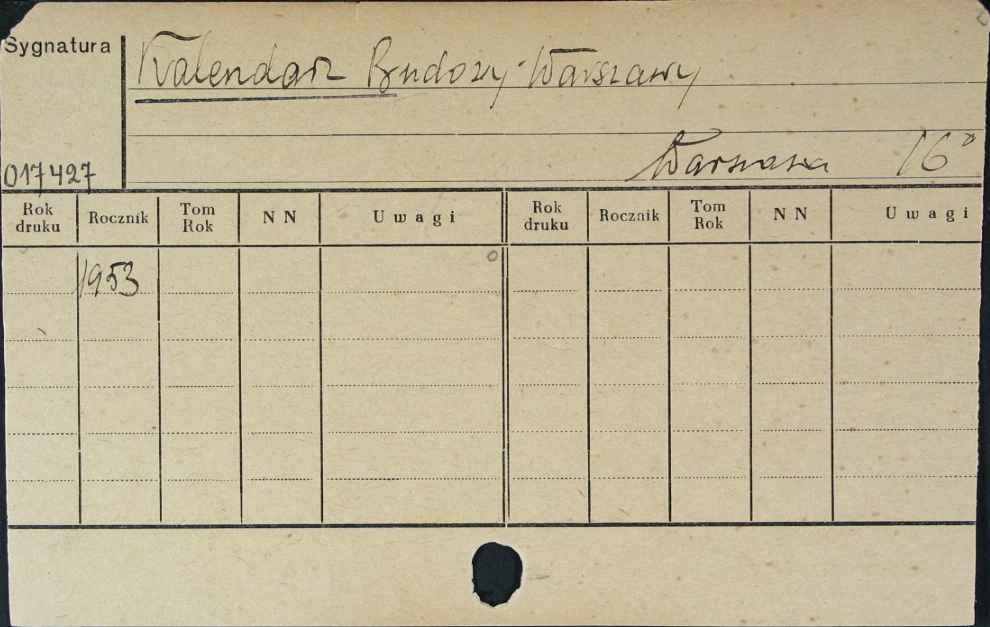 Sygnatura
Kalendarz Budowy Warszawy
Warszawa 16°
017427
Rok druku Rocznik Tom Rok NN Uwagi Rok druku Rocznik Tom Rok NN Uwagi
1953